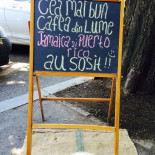 Cea mai bun
Cafea din Lume
Jamaica și Puerto
rica
au sosit!!